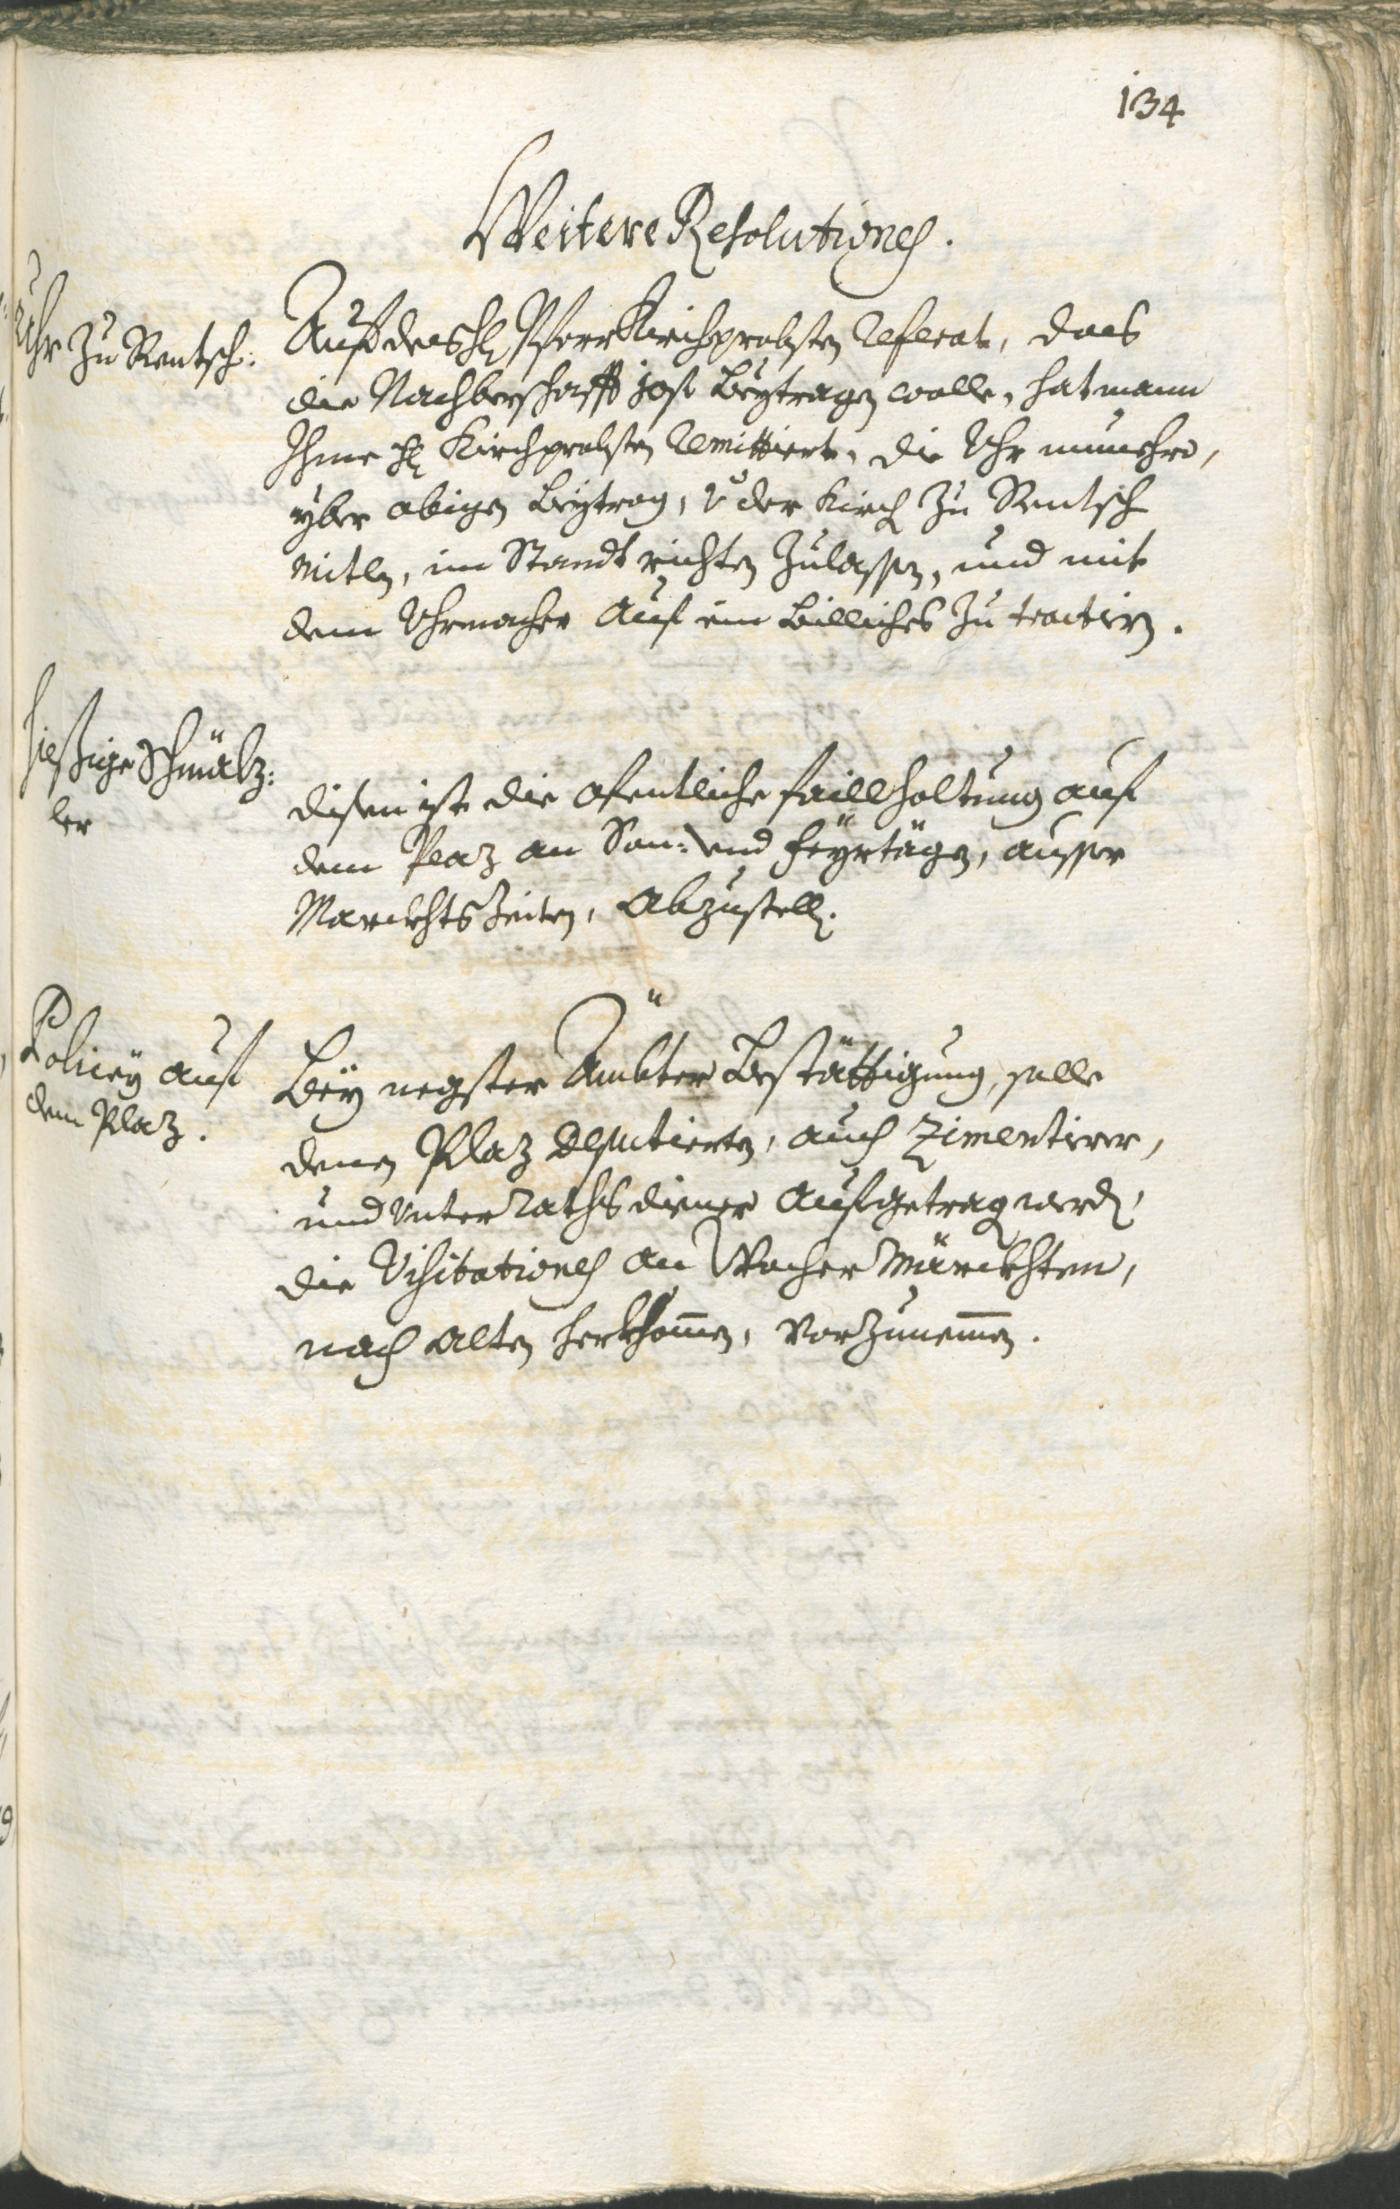 134
Weitere Resolutiones.
Uhr zu Rentsch:
Auf des H Pfarr Kirchprobsten Referat, daß
die Nachberschafft 30 f beytragen wolle, hat mann
Ihme H Kirchprobsten Remittiert, die Uhr nunmehro,
yber obigen beytrag, v der Kirch zu Rentsch
mitlen, im Standt richten zulassen, und mit
dem Uhrmacher auf ein billiches zu tractirn.
hießige Schmälz:
ler
disen ist die ofentliche faillhaltung auf
dem Plaz an Son: vnd feyrtägen, ausser
Marckhts Zeiten, abzustellen.
Policey auf
dem Plaz.
Bey negster Ämbter Bestättigung, solle
denen Plaz Deputierten, auch Zimentirer,
und Unter Raths diener aufgetragen werden,
die Visitationes an Wocher Märckhten,
nach alten herkhommen, vorzunemmen.